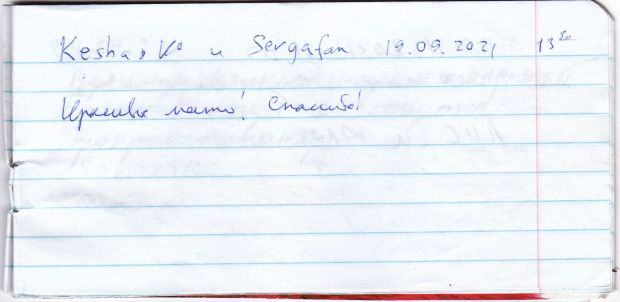 Kesha & K° и Sergafan 19.09.2021 13³⁰
Красивое место! Спасибо!